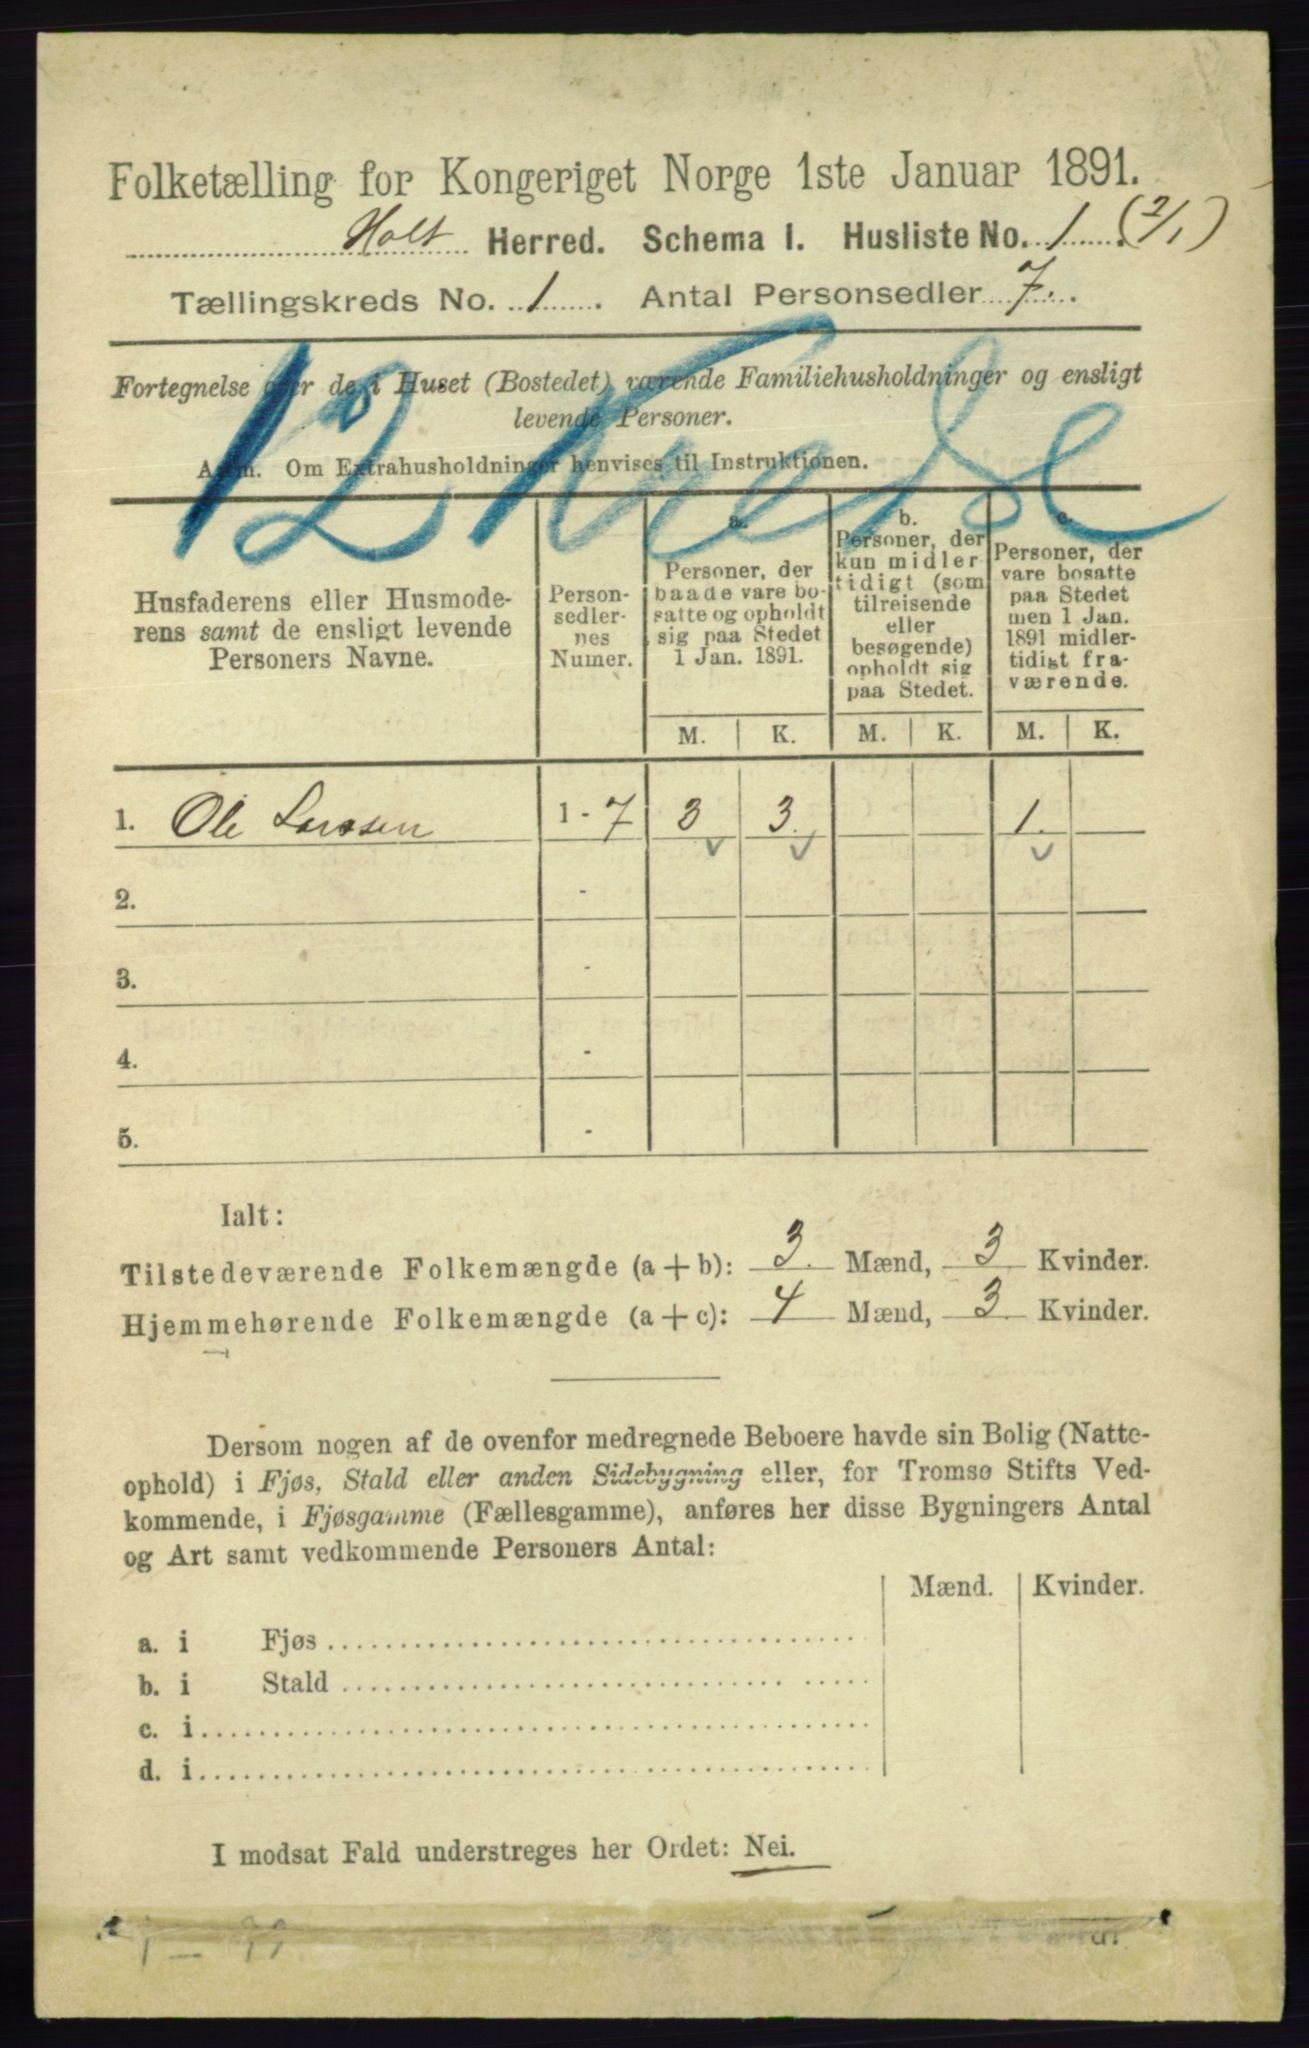 Folketælling for Kongeriget Norge 1ste Januar 1891.
Holt Herred. Schema I. Husliste No. 1 (2/1)
Tællingskreds No. 1. Antal Personsedler 7.
12 Kredse
Fortegnelse over de i Huset (Bostedet) værende Familiehusholdninger og ensligt
levende Personer.
Anm. Om Extrahusholdninger henvises til Instruktionen.
Husfaderens eller Husmode-
rens samt de ensligt levende
Personers Navne.
Person-
sedler-
nes
Numer.
a.
Personer, der
baade vare bo-
satte og opholdt
sig paa Stedet
1 Jan. 1891.
b.
Personer, der
kun midler
tidigt (som
tilreisende
eller
besøgende)
opholdt sig
paa Stedet.
c.
Personer, der
vare bosatte
paa Stedet
men 1 Jan.
1891 midler-
tidigt fra-
værende.
M. K. M. K. M. K.
1. Ole Larssen 1 - 7 3 3. 1.
2. -
3. -
4. -
5. -
Ialt:
Tilstedeværende Folkemængde (a + b): 3 Mænd, 3 Kvinder.
Hjemmehørende Folkemængde (a + c): 4 Mænd, 3 Kvinder.
Dersom nogen af de ovenfor medregnede Beboere havde sin Bolig (Natte-
ophold) i Fjøs, Stald eller anden Sidebygning eller, for Tromsø Stifts Ved-
kommende, i Fjøsgamme (Fællesgamme), anføres her disse Bygningers Antal
og Art samt vedkommende Personers Antal:
Mænd. Kvinder.
a. i Fjøs
b. i Stald
c. i
d. i
I modsat Fald understreges her Ordet: Nei.